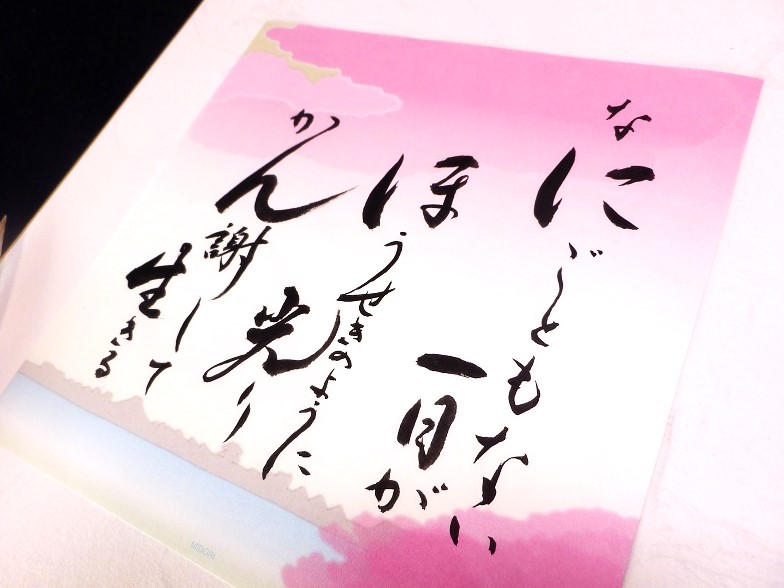 なにごともない
一日が
ほうせきのように
光り
かん謝して
生きる
MIDORI